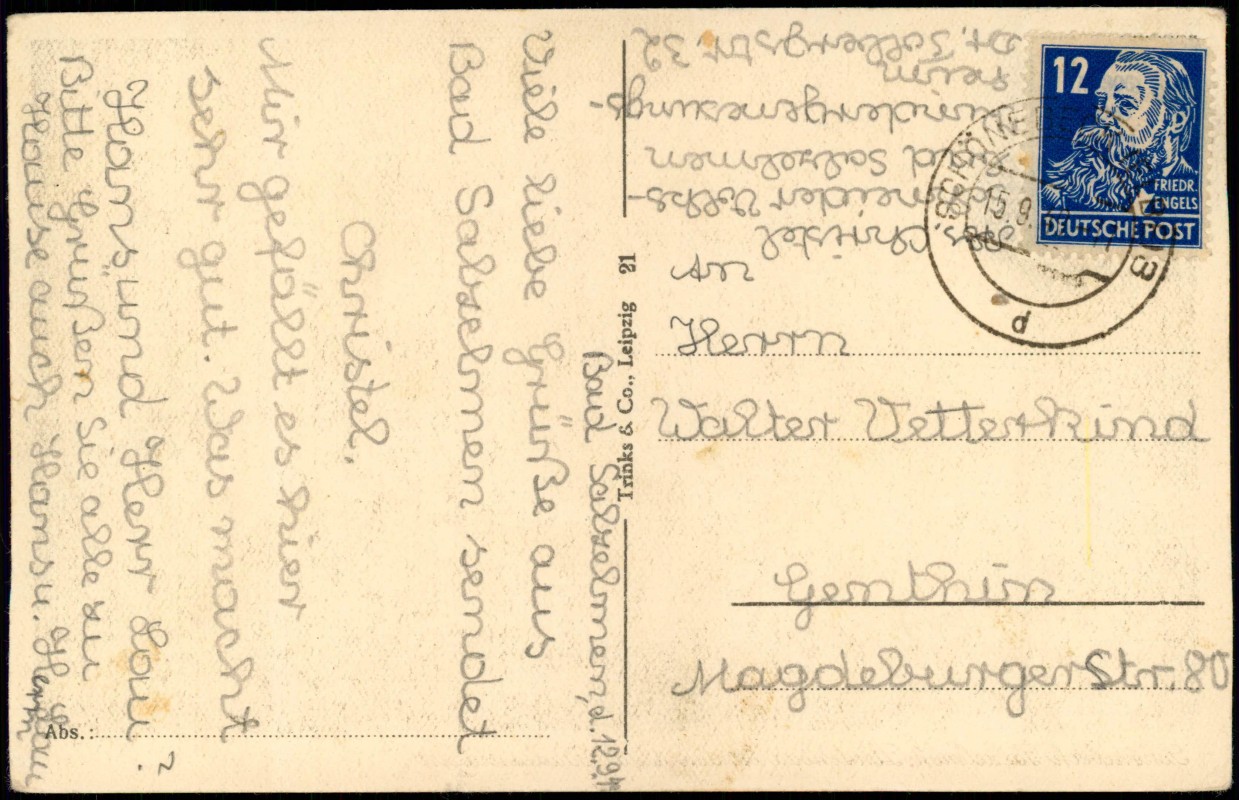 Bad Salzelmen, d. 12.9.
Viele liebe Grüße aus
Bad Salzelmen sendet
Christel.
Mir gefällt es hier
sehr gut. Was macht
Hans und Herr Lau
?
Bitte Grüßen Sie alle zu
Hause auch Hans u. Herrn Lau
Abs.:
Trinks & Co., Leipzig 21
12
FRIEDR.
ENGELS
DEUTSCHE POST
15.9.
An
Herrn
Walter Vetterkind
Genthin
Magdeburger Str. 80
Abs. Christel
Schneider Volks-
Bad Salzelmen
Kindergenesungs-
heim
Dr. Tolbergstr. 32